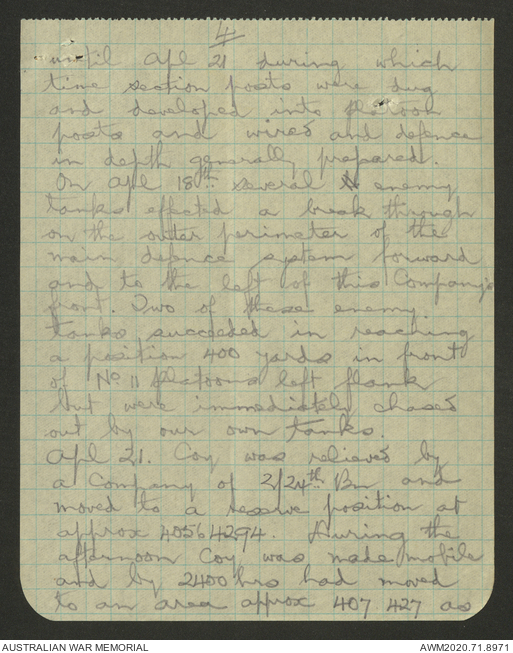 4
until Apl 21 during which
time section posts were dug
and developed into platoon
posts and wired and defence
in depth generally prepared.
On Apl 18th several enemy
tanks effected a break through
on the outer perimeter of the
main defence system forward
and to the left of this Company's
front. Two of these enemy
tanks succeeded in reaching
a position 400 yards in front
of No 11 Platoons left flank
but were immediately chased
out by our own tanks.
Apl 21. Coy was relieved by
a Company of 2/24th Bn and
moved to a reserve position at
approx 40564294. During the
afternoon Coy was made mobile
and by 2400 hrs had moved
to an area approx 407 427 as
AUSTRALIAN WAR MEMORIAL
AWM2020.71.8971